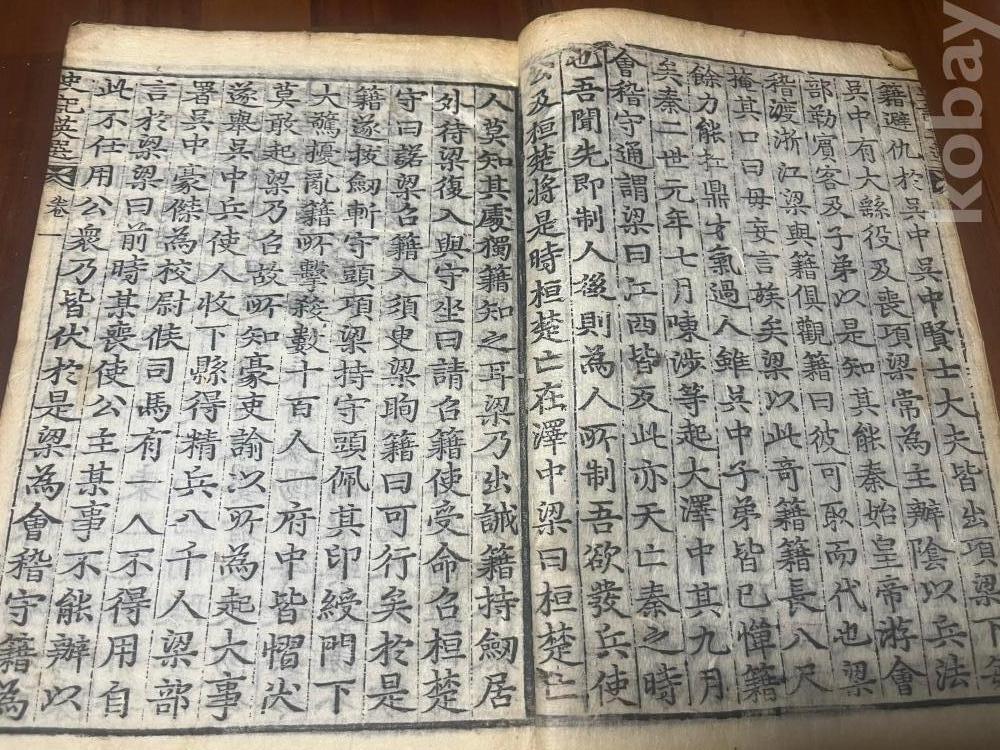 籍避仇於吳中吳中賢士大夫皆出項梁下每
吳中有大繇役及喪項梁常為主辦陰以兵法
部勒賓客及子弟以是知其能秦始皇帝游會
稽渡浙江梁與籍俱觀籍曰彼可取而代也梁
掩其口曰毋妄言族矣梁以此奇籍籍長八尺
餘力能扛鼎才氣過人雖吳中子弟皆已憚籍
矣秦二世元年七月陳涉等起大澤中其九月
會稽守通謂梁曰江西皆反此亦天亡秦之時
也吾聞先即制人後則為人所制吾欲發兵使
公及桓楚將是時桓楚亡在澤中梁曰桓楚亡
人莫知其處獨籍知之耳梁乃出誡籍持劒居
外待梁復入與守坐曰請召籍使受命召桓楚
守曰諾梁召籍入須臾梁眴籍曰可行矣於是
籍遂拔劒斬守頭項梁持守頭佩其印綬門下
大驚擾亂籍所擊殺數十百人一府中皆慴伏
莫敢起梁乃召故所知豪吏諭以所為起大事
遂舉吳中兵使人收下縣得精兵八千人梁部
署吳中豪傑為校尉候司馬有一人不得用自
言於梁曰前時某喪使公主某事不能辦以
此不任用公眾乃皆伏於是梁為會稽守籍為
史記英選 卷一
kobay